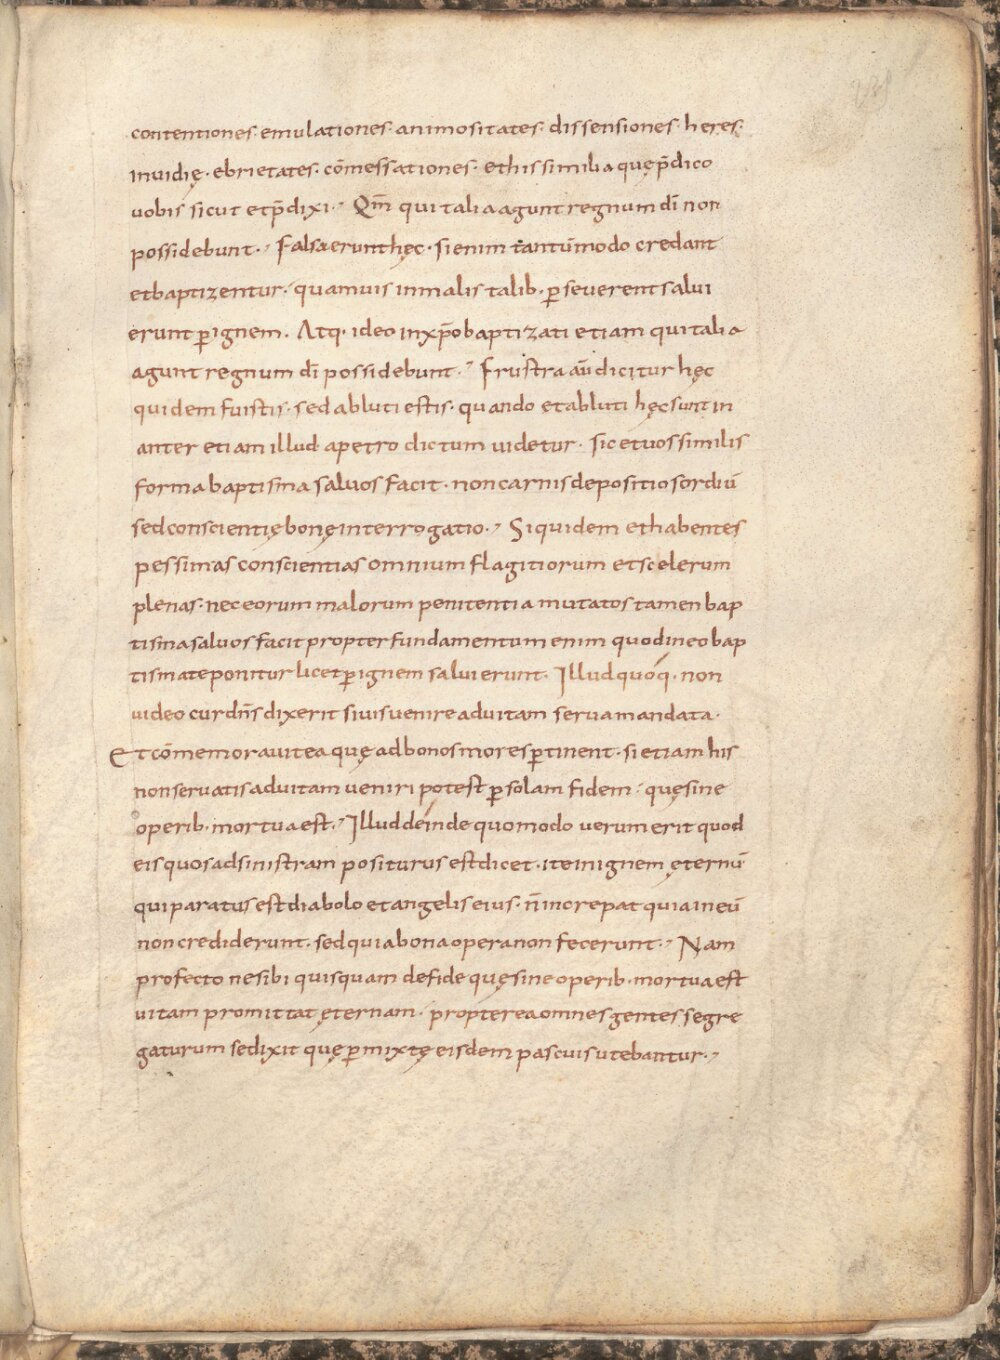 contentiones · emulationes · animositates · dissensiones · hereses ·
inuidię · ebrietates · cōmessationes · et his similia quę p̄dico
uobis sicut et p̄dixi · Qm̄ qui talia agunt regnum dī non
possidebunt · Falsa erunt hęc · si enim tantūmodo credant
et baptizentur · quamuis in malis talib · ꝑseuerent salui
erunt ꝑ ignem . Atq · ideo in xp̄o baptizati etiam qui talia
agunt regnum dī possidebunt · Frustra aū dicitur hęc
quidem fuistis · sed abluti estis · quando et abluti hęc sunt in
anter etiam illud a petro dictum uidetur · sic et uos similis
forma baptisma saluos facit · non carnis depositio sordiū
sed conscientię bonę interrogatio · Siquidem et habentes
pessimas conscientias omnium flagitiorum et scelerum
plenas · nec eorum malorum penitentia mutatos tamen bap
tisma saluos facit propter fundamentum enim quod in eo bap
tismate ponitur licet ꝑ ignem salui erunt · Illud quoq · non
uideo cur dn̄s dixerit si uis uenire ad uitam serua mandata ·
Et cōmemorauit ea quę ad bonos mores ꝑtinent · si etiam his
non seruatis ad uitam ueniri potest ꝑ solam fidem · quę sine
operib · mortua est · Illud deinde quomodo uerum erit quod
eis quos ad sinistram positurus est dicet · ite in ignem ęternū
qui paratus est diabolo et angelis eius · n̄ increpat quia in eū
non crediderunt · sed quia bona opera non fecerunt · Nam
profecto ne sibi quisquam de fide quę sine operib · mortua est
uitam promittat ęternam · propterea omnes gentes segre
gaturum se dixit quę ꝑmixtę eisdem pascuis utebantur ·